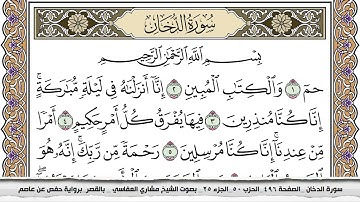 سُورَةُ الدُّخَانِ
بِسْمِ اللَّهِ الرَّحْمَٰنِ الرَّحِيمِ
حمٓ ١ وَالْكِتَابِ الْمُبِينِ ٢ إِنَّا أَنزَلْنَاهُ فِي لَيْلَةٍ مُّبَارَكَةٍ ۚ
إِنَّا كُنَّا مُنذِرِينَ ٣ فِيهَا يُفْرَقُ كُلُّ أَمْرٍ حَكِيمٍ ٤ أَمْرًا
مِّنْ عِندِنَا ۚ إِنَّا كُنَّا مُرْسِلِينَ ٥ رَحْمَةً مِّن رَّبِّكَ ۚ إِنَّهُ هُوَ
سورة الدخان _ الصفحة ٤٩٦ _ الحزب ٥٠ _ الجزء ٢٥ _ بصوت الشيخ مشاري العفاسي _ بالقصر _ برواية حفص عن عاصم